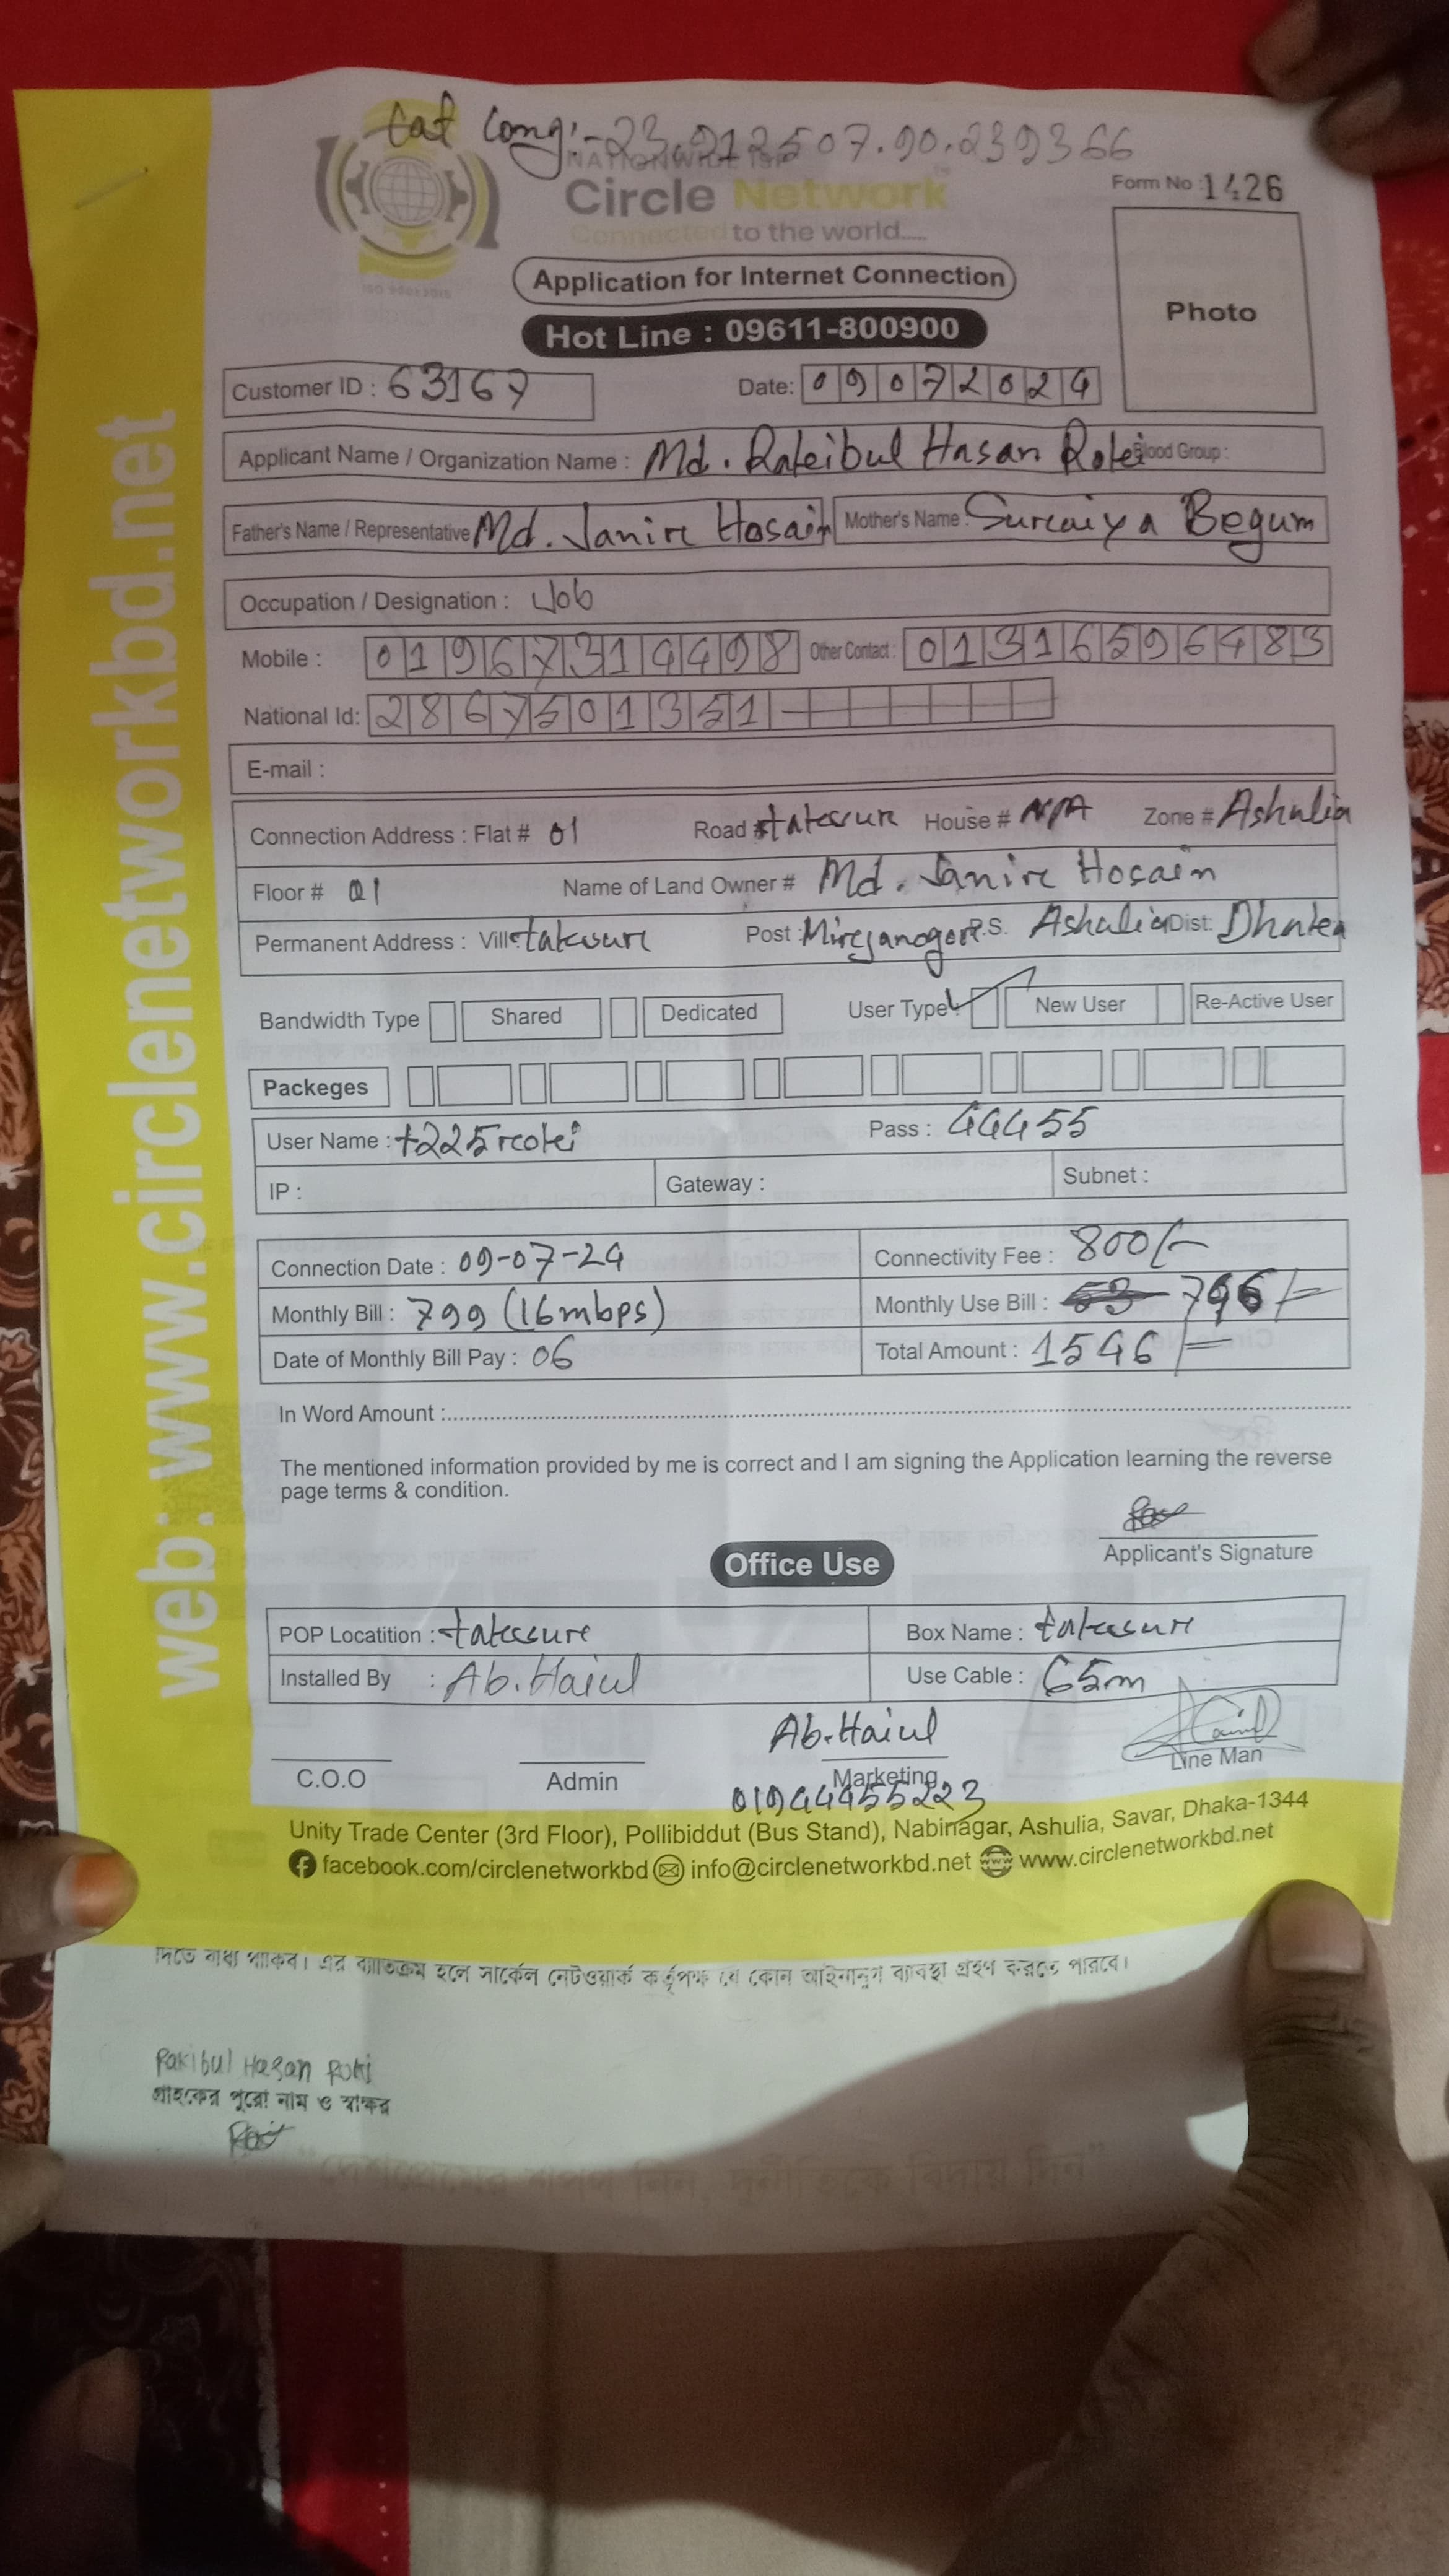 Lat Long:-23.912507.90.239366
NATIONWIDE ISP
Circle Network
Connected to the world....
Form No : 1426
Photo
Application for Internet Connection
Hot Line : 09611-800900
Customer ID : 63167
Date: 09072024
Applicant Name / Organization Name : Md. Rakibul Hasan Roki Blood Group :
Father's Name / Representative Md. Janir Hosain Mother's Name : Suraiya Begum
Occupation / Designation : Job
Mobile : 01967314498 Other Contact : 01316596483
National Id: 2867501351
E-mail :
Connection Address : Flat # 01 Road # taksur House # N/A Zone # Ashulia
Floor # 01 Name of Land Owner # Md. Janir Hosain
Permanent Address : Vill: taksur Post : Mirjanogor P.S. Ashulia Dist: Dhaka
Bandwidth Type Shared Dedicated User Type New User Re-Active User
Packeges
User Name : t225roki Pass : 44455
IP : Gateway : Subnet :
Connection Date : 09-07-24 Connectivity Fee : 800/-
Monthly Bill : 799 (16mbps) Monthly Use Bill : 746/=
Date of Monthly Bill Pay : 06 Total Amount : 1546/=
In Word Amount :
The mentioned information provided by me is correct and I am signing the Application learning the reverse
page terms & condition.
Applicant's Signature
Office Use
POP Locatition : taksur Box Name : taksur
Installed By : Ab. Haiul Use Cable : 65m
Ab. Haiul
C.O.O Admin Marketing Line Man
01944455223
Unity Trade Center (3rd Floor), Pollibiddut (Bus Stand), Nabinagar, Ashulia, Savar, Dhaka-1344
facebook.com/circlenetworkbd info@circlenetworkbd.net www.circlenetworkbd.net
web: www.circlenetworkbd.net
দিতে বাধ্য থাকিব। এর ব্যাতিক্রম হলে সার্কেল নেটওয়ার্ক কর্তৃপক্ষ যে কোন আইনানুগ ব্যাবস্থা গ্রহণ করতে পারবে।
Rakibul Hasan Roki
গ্রাহকের পুরো নাম ও স্বাক্ষর